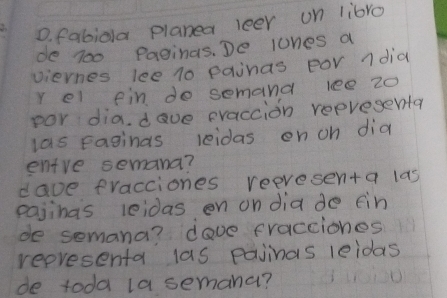 D. fabiola planea leer un libro
de 100 Paginas. De lunes a
viernes lee 10 painas por 1 dia
Y el fin de semana lee 20
por dia. d que fracción representa
las paginas leidas en un dia
entre semana?
d que fracciones representa las
pajinas leidas en un dia de fin
de semana? d que fracciones
representa las pajinas leidas
de toda la semana?